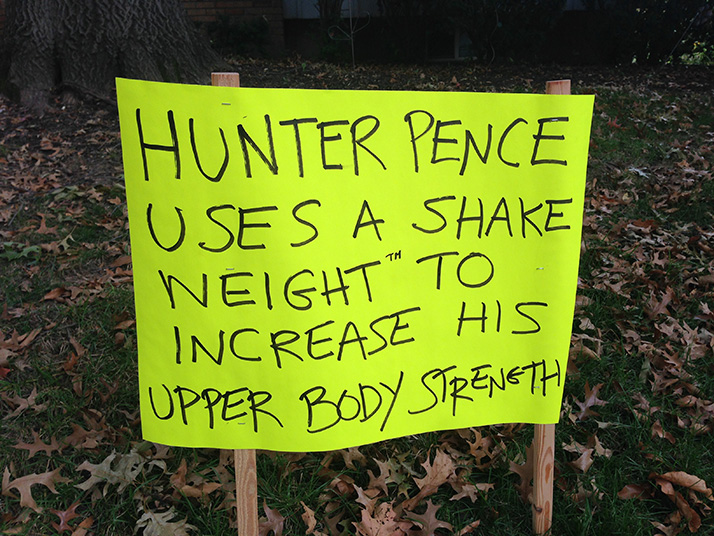 HUNTER PENCE
USES A SHAKE
WEIGHT™ TO
INCREASE HIS
UPPER BODY STRENGTH